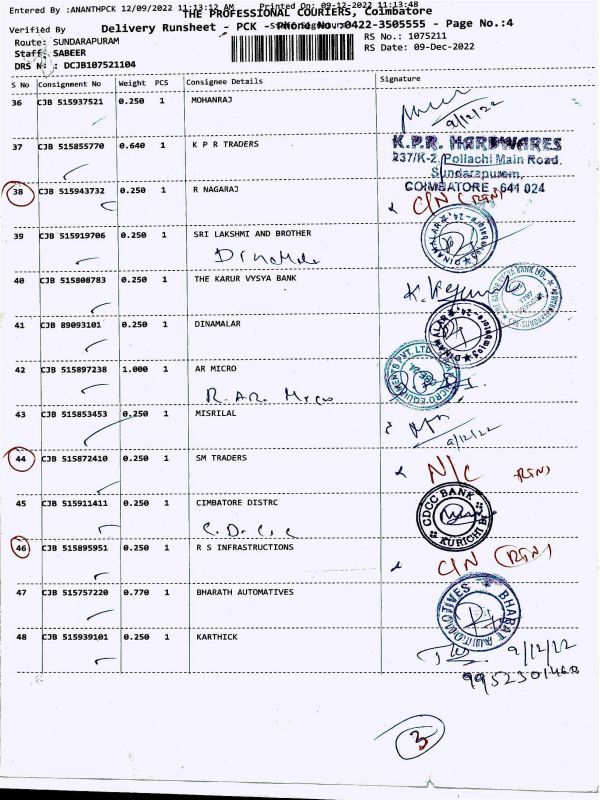 Entered By :ANANTHPCK 12/09/2022 11:13:12 AM Printed On: 09-12-2022 11:13:48
THE PROFESSIONAL COURIERS, Coimbatore
Verified By Delivery Runsheet - PCK - Phone No :0422-3505555 - Page No.:4
Route: SUNDARAPURAM RS No.: 1075211
Staff: SABEER RS Date: 09-Dec-2022
DRS No : DCJB107521104
S No Consignment No Weight PCS Consignee Details Signature
36 CJB 515937521 0.250 1 MOHANRAJ
9/12/22
37 CJB 515855770 0.640 1 K P R TRADERS
K.P.R. HARDWARES
237/K-2, Pollachi Main Road,
Sundarapuram,
COIMBATORE - 641 024
38 CJB 515943732 0.250 1 R NAGARAJ
C/N (RSN)
39 CJB 515919706 0.250 1 SRI LAKSHMI AND BROTHER
DINAMALAR
40 CJB 515808783 0.250 1 THE KARUR VYSYA BANK
41 CJB 89093101 0.250 1 DINAMALAR
DINAMALAR
42 CJB 515897238 1.000 1 AR MICRO
R. AR. Micro
43 CJB 515853453 0.250 1 MISRILAL
9/12/22
44 CJB 515872410 0.250 1 SM TRADERS
N/C RSN)
45 CJB 515911411 0.250 1 CIMBATORE DISTRC
C. D. C. C
CDCC BANK
KURICHI
46 CJB 515895951 0.250 1 R S INFRASTRUCTIONS
C/N (RSN)
47 CJB 515757220 0.770 1 BHARATH AUTOMATIVES
BHARAT AUTOMOTIVES
48 CJB 515939101 0.250 1 KARTHICK
9/12/22
3